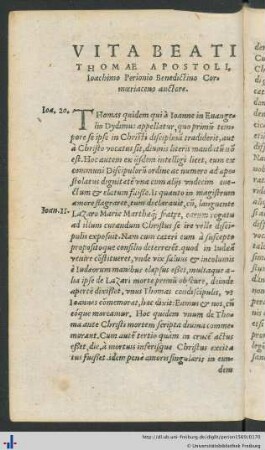 VITA BEATI
THOMAE APOSTOLI,
Ioachimo Perionio Benedictino Cor-
mœriaceno auctore.
Ioa. 20.
THomas quidem qui à Ioanne in Euange-
lio Dydimus appellatur, quo primùm tem-
pore se ipse in Christi disciplinā tradiderit, aut
à Christo vocatus sit, diuinis literis mandatū nō
est. Hoc autem ex iisdem intelligi licet, eum ex
communi Discipulorū ordine ac numero ad apo-
stolatus dignitatē vnà cum aliis vndecim
ductū & electum fuisse. Is quanto in magistrum
amore flagrerét, tum declarauit, cū, languente
Ioan. 11.
Lazaro Mariæ Marthæq; fratre, eorum rogatu
ad illum curandum Christus se ire velle disci-
pulis exposuit. Nam cum cæteri eum à suscepto
propositoque consilio deterrerēt. quod in Iudeā
venire cōstituerat, vnde vix saluus & incolumis
è Iudæorum manibus elapsus esset, multaque a-
lia ipse de Lazari morte prēmū obscurè, deinde
apertè dixisset, vnus Thomas condiscipulis, vt
Ioannes cōmemorat, hoc dixit: Eamus & nos, vt
cū eóque moriamur. Hoc quidem vnum de Tho-
ma ante Christi mortem scripta diuina comme-
morant. Cum autē tertio quàm in crucē actus
est, die, à mortuis inferisque Christus excita
tus fuisset. idem penè amoris singularis in eun-
dem
http://dl.ub.uni-freiburg.de/diglit/perion1569/0170
© Universitätsbibliothek Freiburg